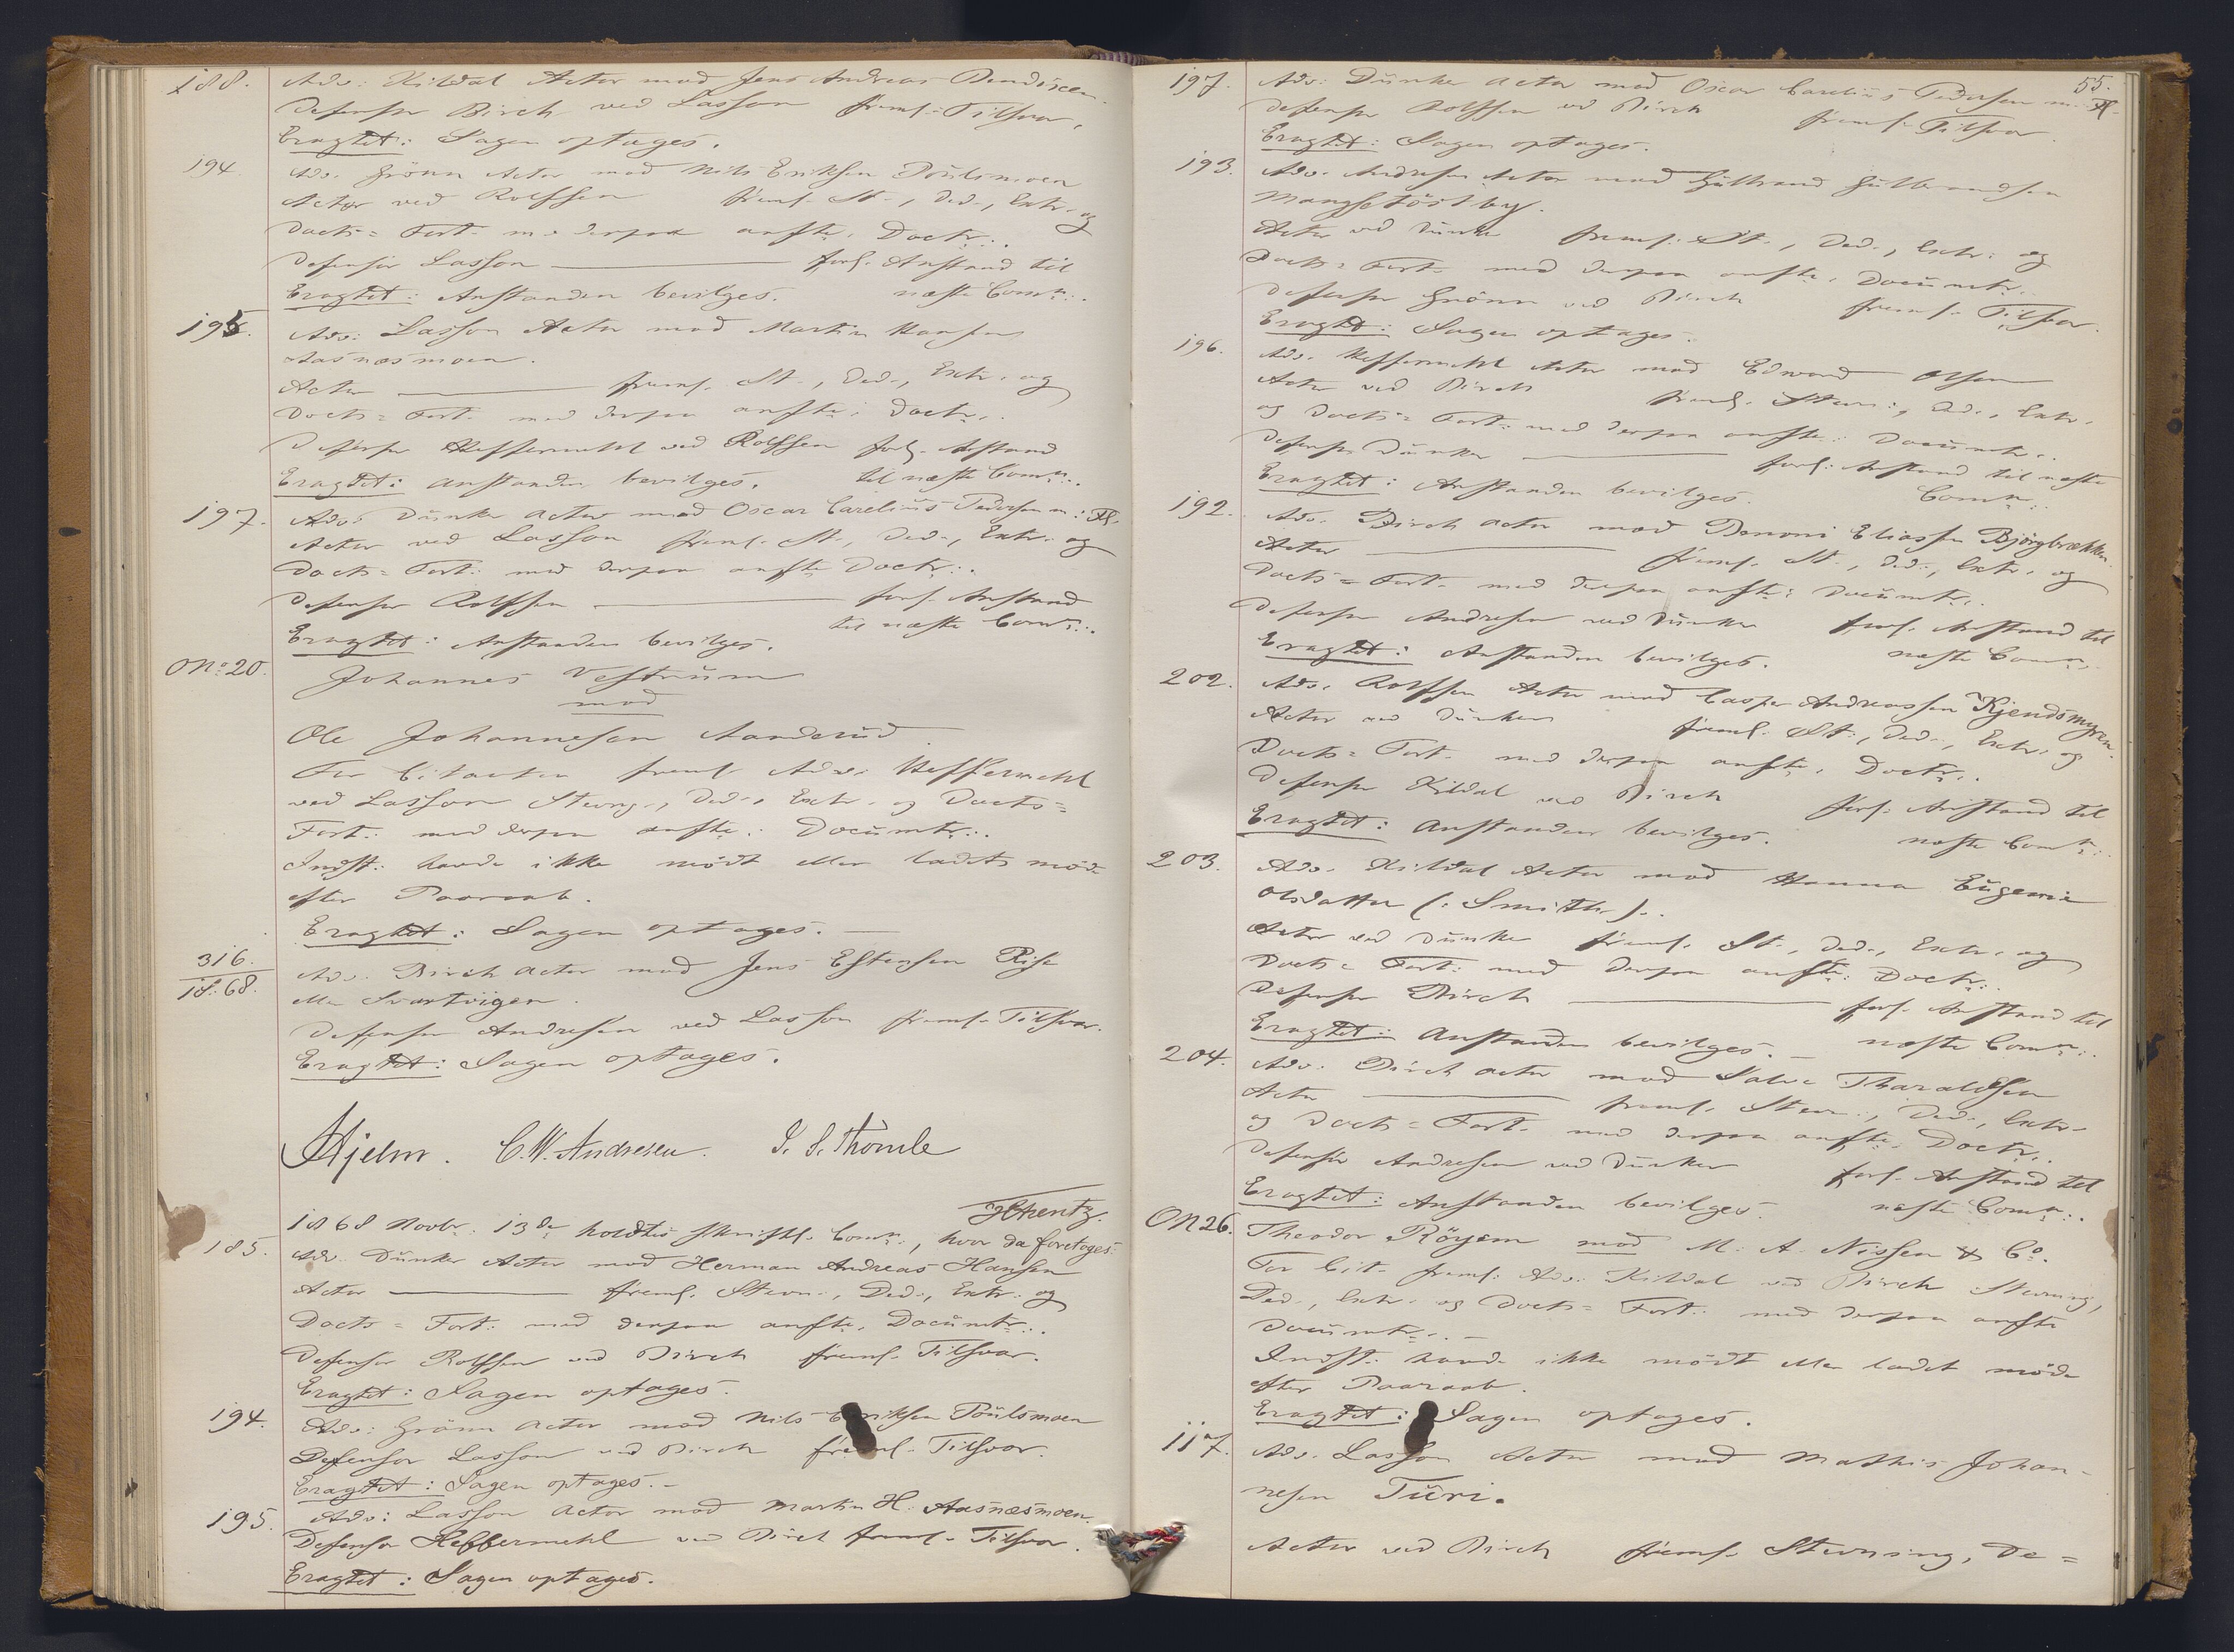 188. Adv: Kildal Actor mod Jens Andreas Bendixen.
Defensor Birch ved Lasson freml. Tilsvar.
Eragtet: Sagen optages.
194. Adv. Grönn Actor mod Nils Eriksen Poülsmoen
Actor ved Rolfsen freml. St., Ded., Extr. og
Docts= Fort. med derpaa anfte. Doctr:.
Defensor Lasson — forl. Anstand til
Eragtet: Anstanden bevilges. næste Comn:.
195. Adv: Lasson Actor mod Martin Hansen
Aasnæsmoen.
Actor — freml. St., Ded., Extr. og
Docts= Fort. med derpaa anfte: Doctr:.
Defensor Heffermehl ved Rolfsen forl. Anstand
Eragtet: Anstanden bevilges. til næste Comn:.
197. Adv: Dünker Actor mod Oscar Carelius Pedersen m: Fl.
Actor ved Lasson freml. St., Ded., Extr. og
Docts= Fort: med derpaa anfte Doctr:.
Defensor Rolfsen — forl. Anstand
til næste Comn:.
Eragtet: Anstanden bevilges.
ONo 20. Johannes Vestrum
mod
Ole Johannesen Aanderud.
For Citanten freml. Adv: Heffermehl
ved Lasson Stevng., Ded., Extr. og Docts=
Fort: med derpaa anfte: Documtr:.
Indst: havde ikke mödt eller ladet möde
efter Paaraab.
Eragtet: Sagen optages. —
316./18:68. Adv: Birch Actor mod Jens Estensen Rise
eller Svartvigen.
Defensor Andresen ved Lasson freml. Tilsvar.
Eragtet: Sagen optages.
Hjelm. C. W. Andresen. J. S. Thomle
1868 Novbr. 13de holdtes skriftl. Comn:, hvor da foretoges:
185. Adv. Dünker Actor mod Herman Andreas Hansen
Actor — freml. Stevn:, Ded:, Extr: og
Docts= Fort: med derpaa anfte. Documtr:.
Defensor Rolfsen ved Birch freml. Tilsvar.
Eragtet: Sagen optages.
194. Adv: Grönn Actor mod Nils Eriksen Poülsmoen
Defensor Lasson ved Birch freml. Tilsvar.
Eragtet: Sagen optages. -
195. Adv: Lasson Actor mod Martin H. Aasnæsmoen.
Defensor Heffermehl ved Birch freml. Tilsvar.
Eragtet: Sagen optages.
55.
197. Adv: Dünker Actor mod Oscar Carelius Pedersen m. Fl.
Defensor Rolfsen ved Birch freml. Tilsvar.
Eragtet: Sagen optages.
193. Adv. Andresen Actor mod Gülbrand Gülbrandsen
Mangsetöstby.
Actor ved Dünker freml. St., Ded., Extr: og
Docts= Fort. med derpaa anfte. Documtr:.
Defensor Grönn ved Birch freml. Tilsvar.
Eragtet: Sagen optages.
196. Adv. Heffermehl Actor mod Edward Olsen
Actor ved Birch freml. Stevn:, Ded., Extr.
og Docts= Fort: med derpaa anfte: Documtr:.
Defensor Dünker — forl. Anstand til næste
Eragtet: Anstanden bevilges. Comn:.
192. Adv. Birch Actor mod Benoni Eliassen Björgbrækken.
Actor — freml. St., Ded:, Extr. og
Docts= Fort. med derpaa anfte: Documtr:.
Defensor Andresen ved Dünker forl. Anstand til
Eragtet: Anstanden bevilges. næste Comn:.
202. Adv. Rolfsen Actor mod Casper Andreassen Kjendsmyren.
Actor ved Dünker freml. St:, Ded:, Extr: og
Docts= Fort. med derpaa anfte. Doctr:.
Defensor Kildal ved Birch forl. Anstand til
Eragtet: Anstanden bevilges. næste Comn:.
203. Adv. Kildal Actor mod Hanna Eügenie
Olsdatter (: Smith:).
Actor ved Dünker freml. St., Ded., Extr. og
Docts= Fort: med derpaa anfte: Doctr:.
Defensor Birch — forl. Anstand til
Eragtet: Anstanden bevilges. — næste Comn:.
204. Adv. Birch Actor mod Salve Tharaldsen
Actor — freml. Stevn:, Ded., Extr.
og Docts= Fort. med derpaa anfte. Doctr:.
Defensor Andresen ved Dünker forl. Anstand til
Eragtet: Anstanden bevilges. næste Comn:.
ON 26. Theodor Röyem mod M. A. Nissen & Co.
For Cit. freml: Adv: Kildal ved Birch Stevning,
Ded., Extr. og Docts= Fort: med derpaa anfte
Documtr:. -
Indst: havde ikke mödt eller ladet möde
efter Paaraab.
Eragtet: Sagen optages.
117. Adv. Lasson Actor mod Mathis Johan-
nesen Türi.
Actor ved Birch freml. Stevning, De=